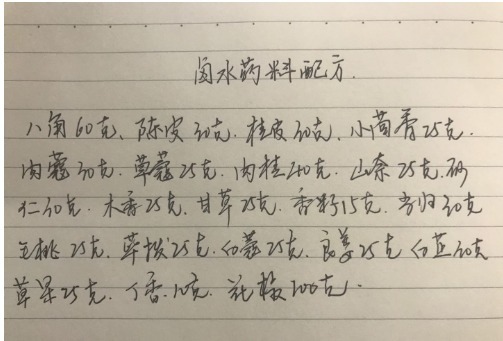 卤水药料配方.
八角60克、陈皮30克.桂皮30克.小茴香25克.
肉蔻30克.草蔻25克.肉桂40克.山奈25克.砂
仁30克.木香25克.甘草25克.香籽15克.当归30克
25克.荜拨25克.白蔻25克.良姜25克 白芷30克
草果25克.丁香.10克.花椒100克.